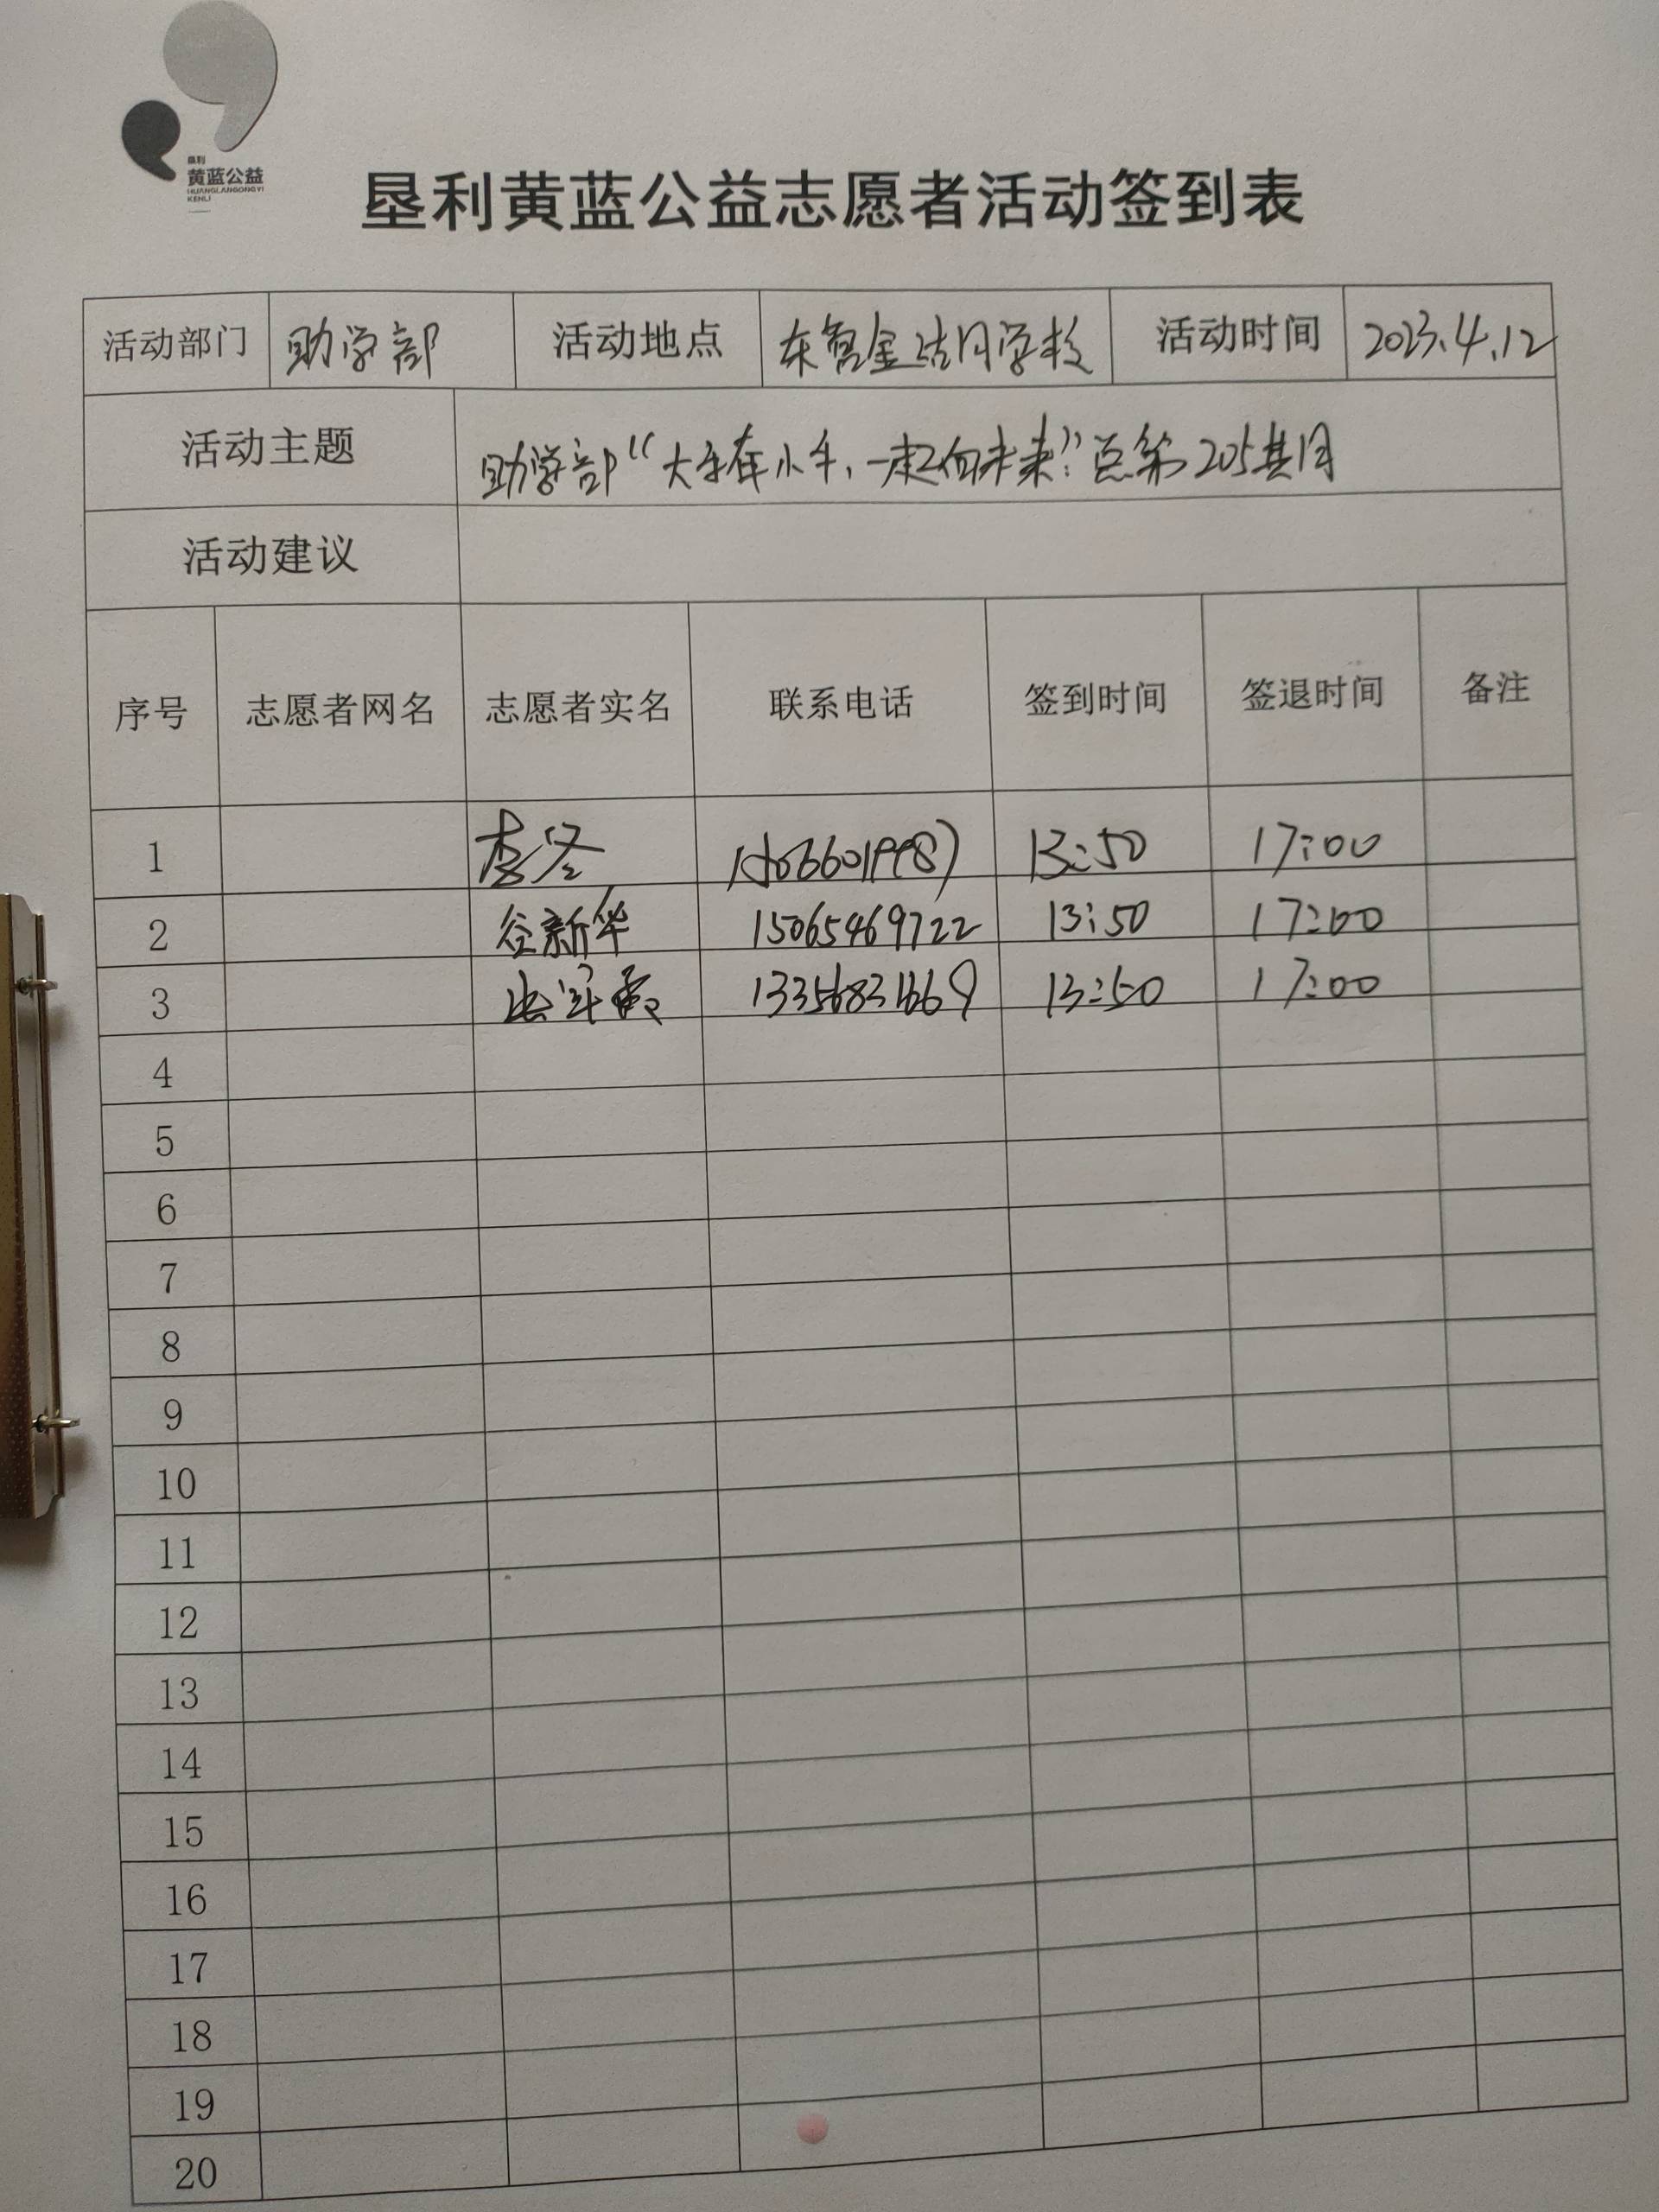 垦利
黄蓝公益
HUANGLANGONGYI
KENLI
垦利黄蓝公益志愿者活动签到表
活动部门 助学部 活动地点 东营金 学校 活动时间 2023.4.12
活动主题 助学部“大手牵小手,一起向未来”总第205期
活动建议
序号 志愿者网名 志愿者实名 联系电话 签到时间 签退时间 备注
1 李冬 13:50 17:00
2 谷新华 15065469722 13:50 17:00
3 13356831669 13:50 17:00
4
5
6
7
8
9
10
11
12
13
14
15
16
17
18
19
20